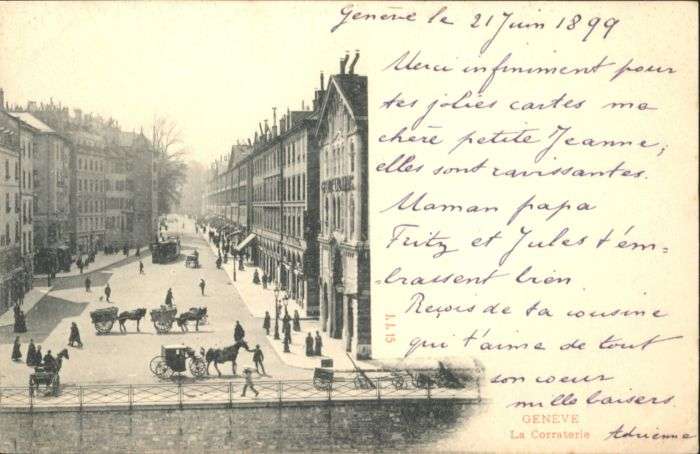 Genève le 21 Juin 1899
Merci infiniment pour
tes jolies cartes ma
chère petite Jeanne,
elles sont ravissantes.
Maman papa
Fritz et Jules t'em=
brassent bien
Reçois de ta cousine
qui t'aime de tout
son coeur
mille baisers
Adrienne
GENÈVE
La Corraterie